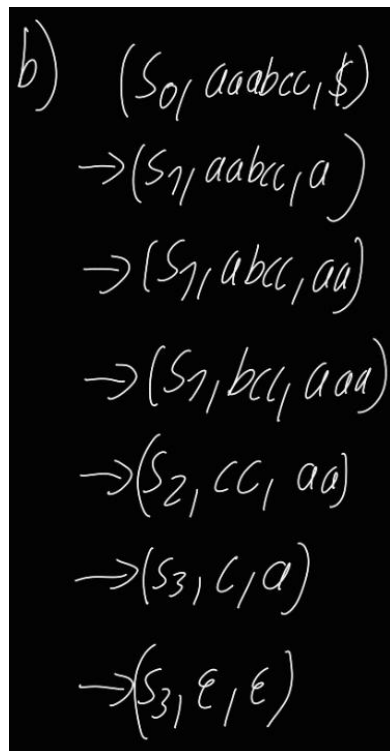 b) (S0, aaabcc, $)
→(S1, aabcc, a)
→(S1, abcc, aa)
→(S1, bcc, aaa)
→(S2, cc, aa)
→(S3, c, a)
→(S3, ε, ε)